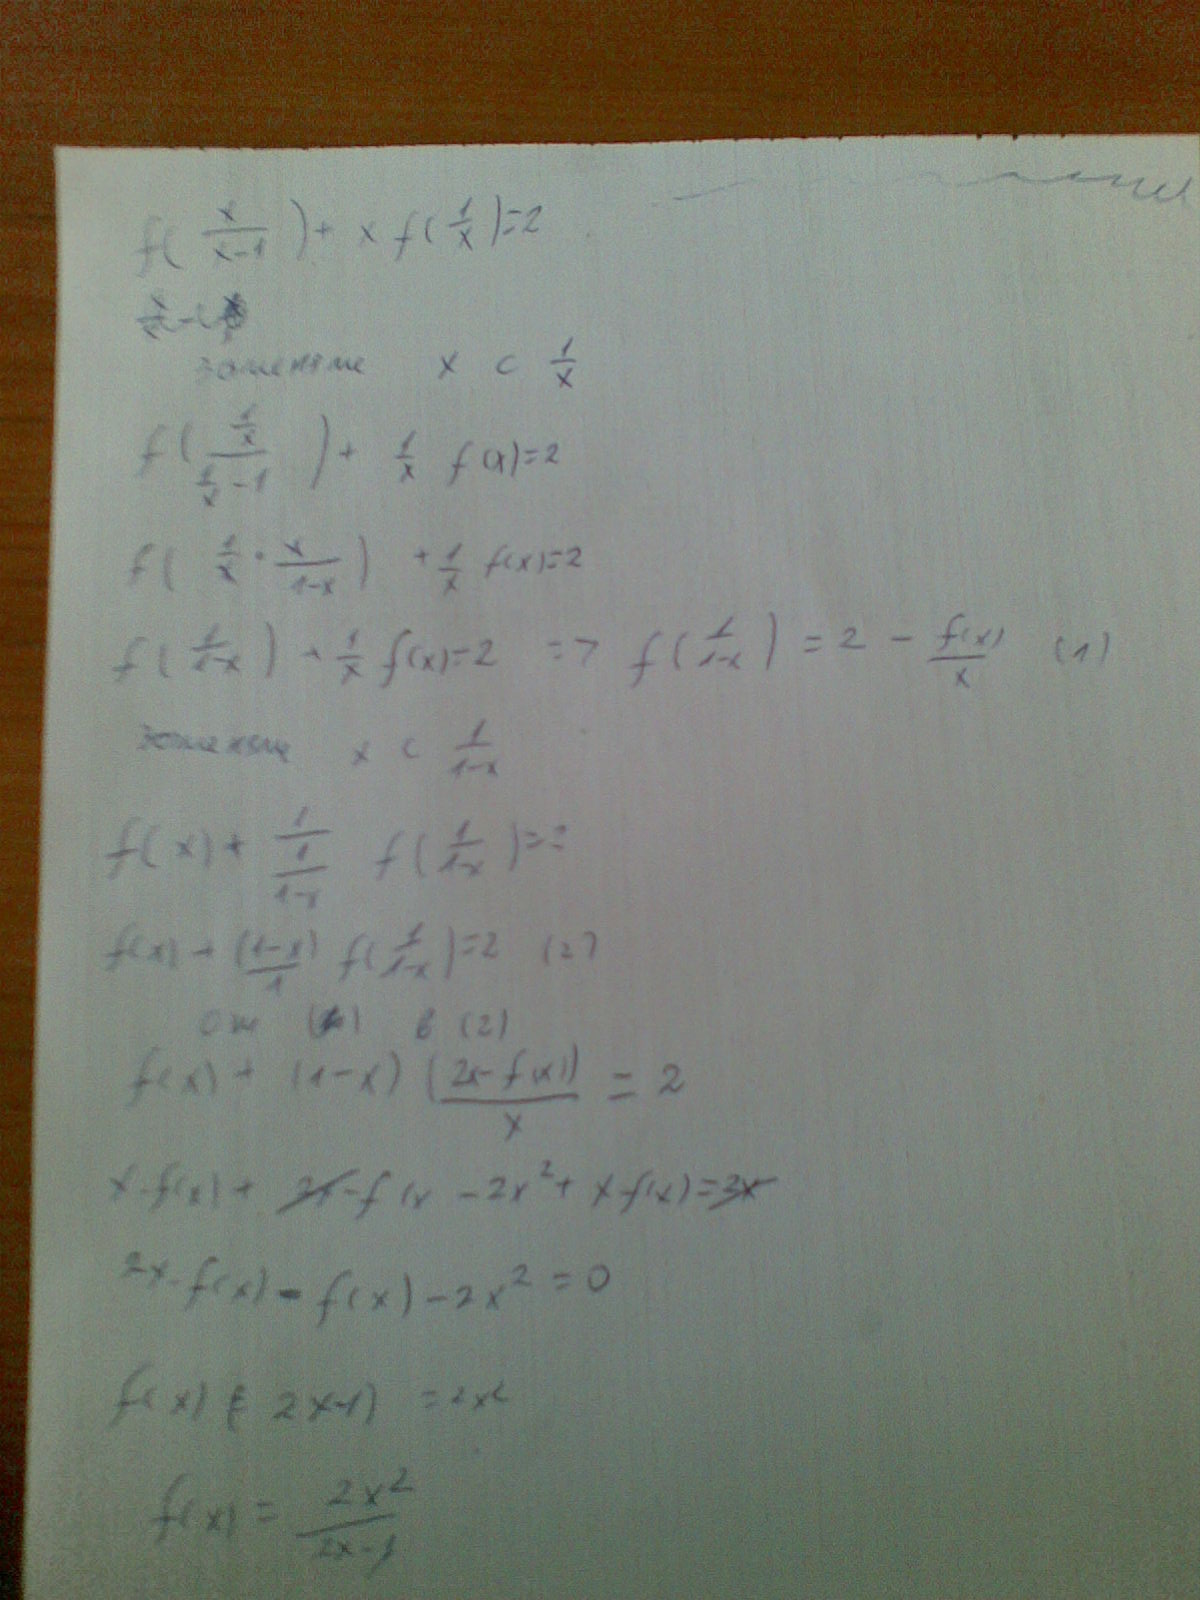 f( x/(x-1) ) + x f( 1/x ) = 2
заменяме x с 1/x
f( (1/x)/(1/x - 1) ) + 1/x f(x) = 2
f( 1/x · x/(1-x) ) + 1/x f(x) = 2
f( 1/(1-x) ) + 1/x f(x) = 2 => f( 1/(1-x) ) = 2 - f(x)/x (1)
заменяме x с 1/(1-x)
f(x) + 1/(1/(1-x)) f( 1/(1-x) ) = 2
f(x) + (1-x)/1 f( 1/(1-x) ) = 2 (2)
от (1) в (2)
f(x) + (1-x) (2x - f(x))/x = 2
x·f(x) + 2x - f(x - 2x² + x·f(x) = 2x
2x·f(x) - f(x) - 2x² = 0
f(x) ( 2x-1) = 2x²
f(x) = 2x²/(2x-1)